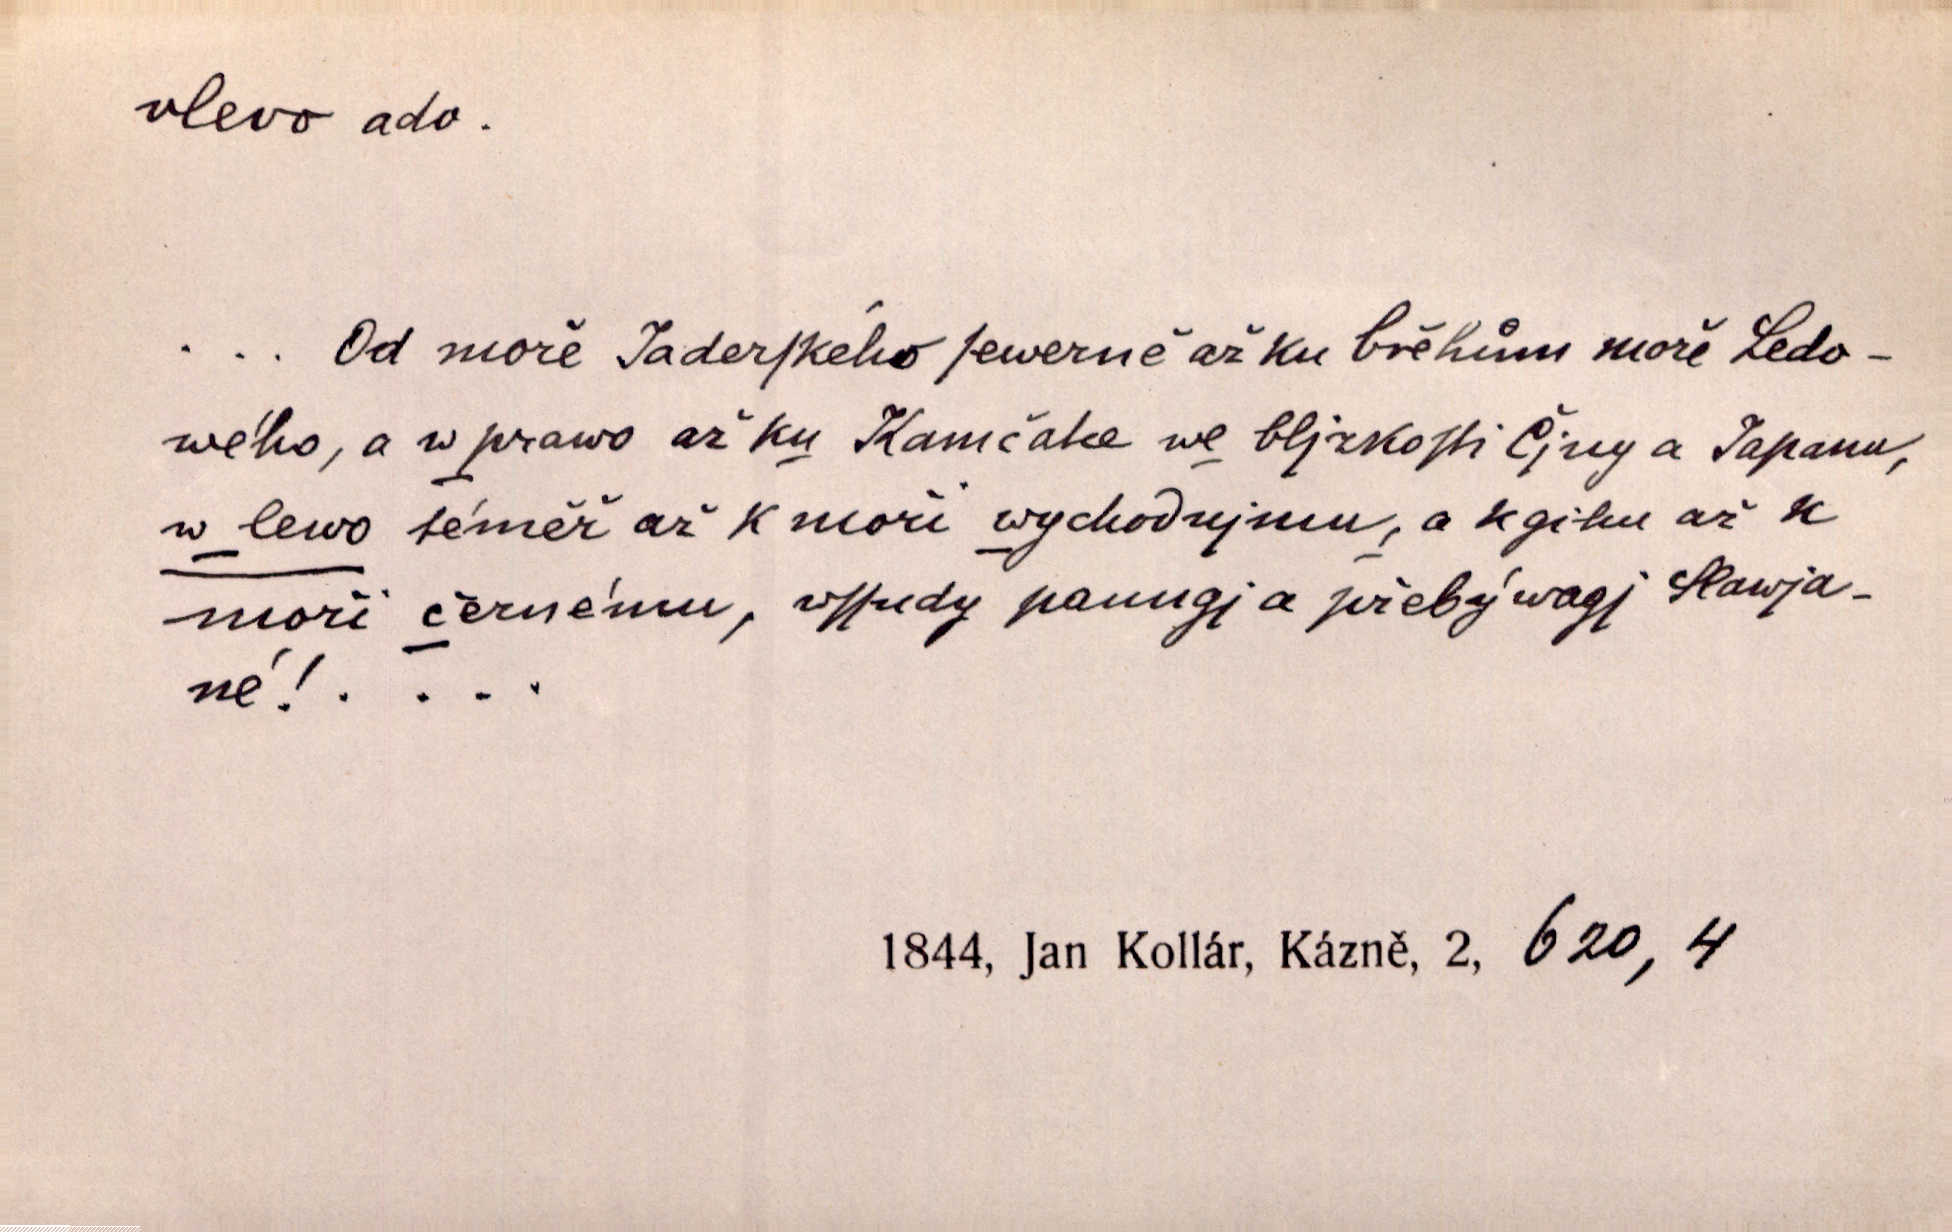 vlevo adv.
... Od moře Jaderſkého ſewerně až ku břehům moře Ledo-
wého, a w prawo až ku Kamčatce we bljzkoſti Čjny a Japanu,
w lewo téměř až k moři wychodnjmu, a k gihu až k
moři černému, wſſudy panugj a přebýwagj Slawja-
né! . . . .
1844, Jan Kollár, Kázně, 2, 620, 4